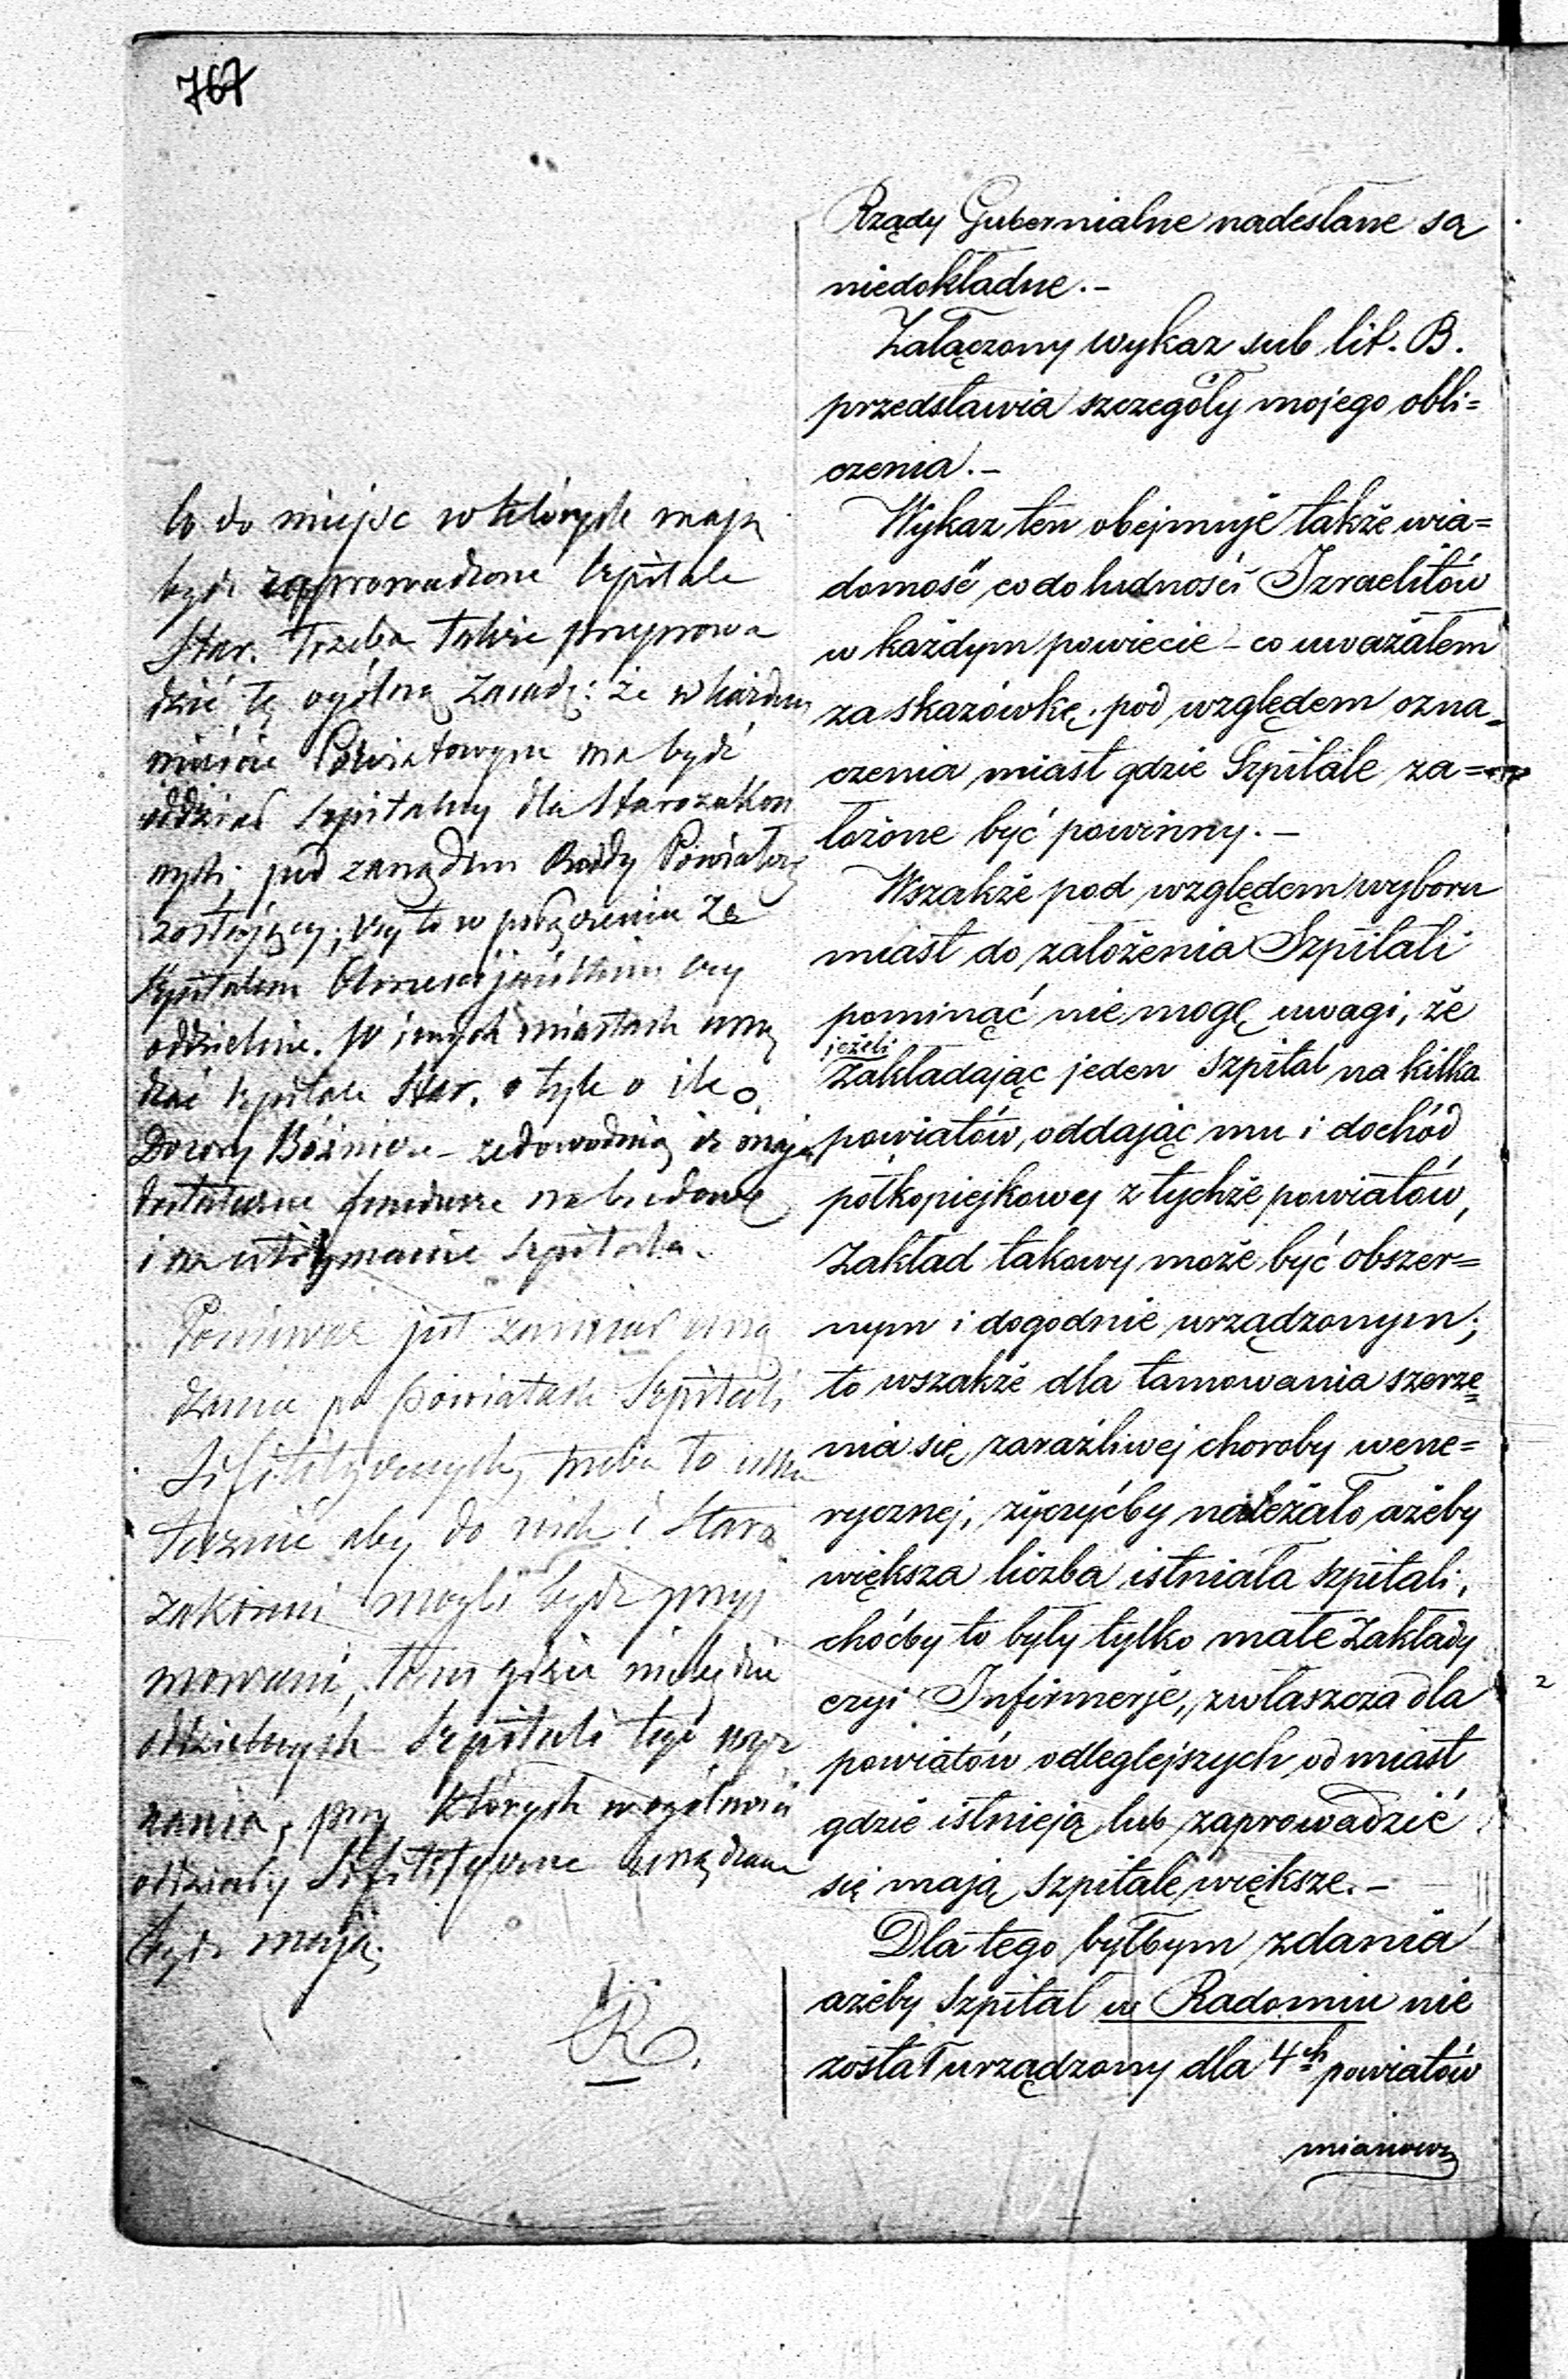 767
Rządy Gubernialne nadesłane są
niedokładne.-
Załączony wykaz sub lit. B.
przedstawia szczegóły mojego obli=
czenia.-
Wykaz ten obejmuje także wia=
domość co do ludności Izraelitów
w każdym powiecie - co uważałem
za skazówkę, pod względem ozna=
czenia miast gdzie Szpitale za=
łożone być powinny.-
Wszakże pod względem wyboru
miast do założenia Szpitali
pominąć nie mogę uwagi, że
jeżeli
zakładając jeden szpital na kilka
powiatów, oddając mu i dochód
półkopiejkowy z tychże powiatów,
Zakład takowy może być obszer=
nym i dogodnie urządzonym;
to wszakże dla tamowania szerze=
nia się zaraźliwej choroby wene=
rycznej, życzyćby należało ażeby
większa liczba istniała szpitali,
choćby to były tylko małe Zakłady
czyi Infirmerje, zwłaszcza dla
powiatów odleglejszych od miast
gdzie istnieją lub zaprowadzić
się mają szpitale większe.-
Dla tego byłbym zdania
ażeby szpital w Radomiu nie
został urządzony dla 4ch powiatów
mianowi
Co do miejsc w których mają
bydź zaprowadzone Szpitale
Star. trzeba także przeprowa
dzić tę ogólną zasadę: że w każdem
mieście Powiatowym ma bydź
oddział szpitalny dla Starozakon
nych, pod zarządem Rady Powiatowej
zostający; czy to w połączeniu ze
szpitalem Chrześcijańskim czy
oddzielnie. W innych miastach urzą
dzać szpitale Star. o tyle o ile
Dozory Bóżnicze - zedowodnią iż mają
dostateczne fundusze na budowę
i na utrzymanie szpitala.
Ponieważ jest zamiar urzą
dzenia po powiatach Szpitali
Sifilitycznych, trzeba to usku
tecznić aby do nich i Staro
zakonni mogli bydź przyj
mowani, tam gdzie niebędzie
oddzielnych Szpitali tego wyz
nania, przy których w ogólności
oddziały Sifilityczne urządzane
bydź mają.